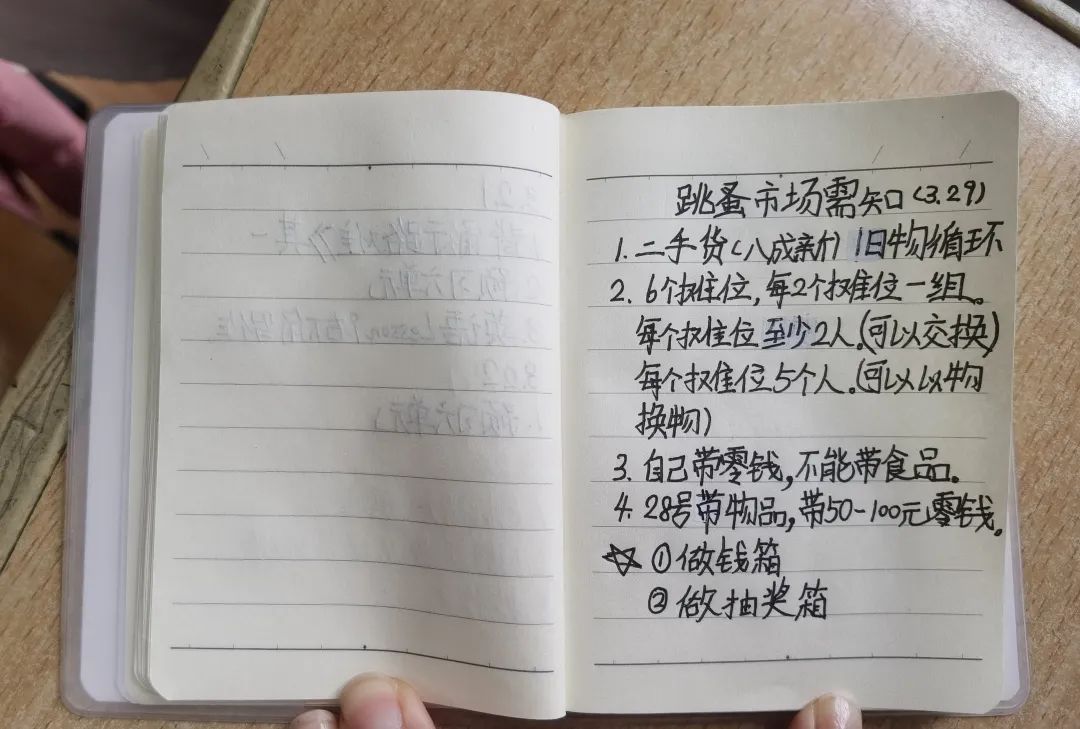 跳蚤市场需知(3.29)
1. 二手货(八成新) 旧物循环
2. 6个摊位,每2个摊位一组。
每个摊位至少2人。(可以交换)
每个摊位5个人。(可以以物
换物)
3. 自己带零钱,不能带食品。
4. 28号带物品,带50-100元零钱。
☆ ①做钱箱
②做抽奖箱